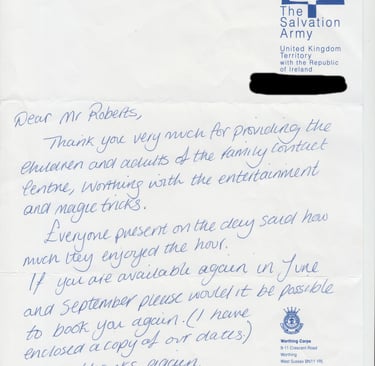 The
Salvation
Army
United Kingdom
Territory
with the Republic
of Ireland
Dear Mr Roberts,
Thank you very much for providing the
children and adults of the family contact
Centre, Worthing with the entertainment
and magic tricks.
Everyone present on the day said how
much they enjoyed the hour.
If you are available again in June
and September please would it be possible
to book you again. (I have
enclosed a copy of our dates.)
Thanks again
Worthing Corps
9-11 Crescent Road
Worthing
West Sussex BN11 1RL